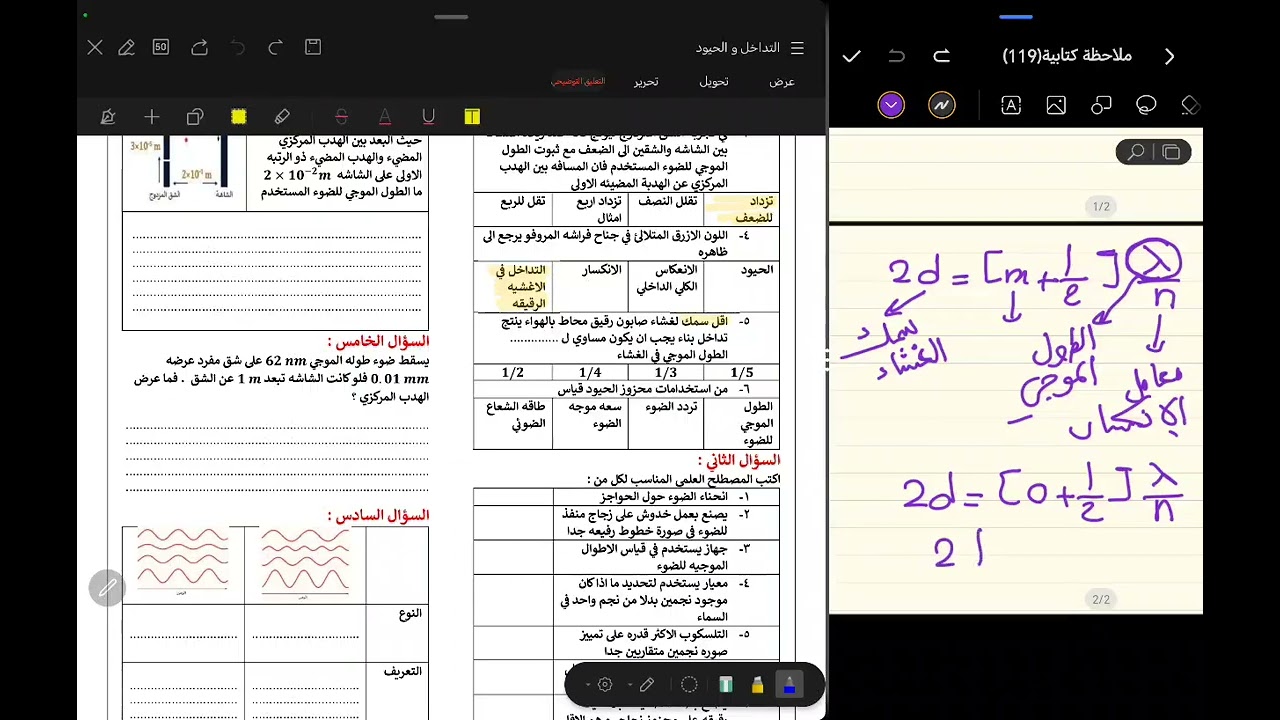 التداخل و الحيود
عرض
تحويل
تحرير
التعليق التوضيحي
50
بين الشاشه والشقين الى الضعف مع ثبوت الطول
الموجي للضوء المستخدم فان المسافه بين الهدب
المركزي عن الهدبة المضيئه الاولى
تزداد للضعف
تقلل النصف
تزداد اربع امثال
تقل للربع
٤- اللون الازرق المتلالئ في جناح فراشه المروفو يرجع الى
ظاهره
الحيود
الانعكاس الكلي الداخلي
الانكسار
التداخل في الاغشيه الرقيقه
٥- اقل سمك لغشاء صابون رقيق محاط بالهواء ينتج
تداخل بناء يجب ان يكون مساوي ل ..............
الطول الموجي في الغشاء
1/5
1/3
1/4
1/2
٦- من استخدامات محزوز الحيود قياس
الطول الموجي للضوء
تردد الضوء
سعه موجه الضوء
طاقه الشعاع الضوئي
السؤال الثاني :
اكتب المصطلح العلمي المناسب لكل من :
١- انحناء الضوء حول الحواجز
٢- يصنع بعمل خدوش على زجاج منفذ
للضوء في صورة خطوط رفيعه جدا
٣- جهاز يستخدم في قياس الاطوال
الموجيه للضوء
٤- معيار يستخدم لتحديد ما اذا كان
موجود نجمين بدلا من نجم واحد في
السماء
٥- التلسكوب الاكثر قدره على تمييز
صوره نجمين متقاربين جدا
حيث البعد بين الهدب المركزي
المضيء والهدب المضيء ذو الرتبه
الاولى على الشاشه 2 × 10⁻² m
ما الطول الموجي للضوء المستخدم
الشاشة
الشق المزدوج
السؤال الخامس :
يسقط ضوء طوله الموجي 62 nm على شق مفرد عرضه
0.01 mm فلو كانت الشاشه تبعد 1 m عن الشق . فما عرض
الهدب المركزي ؟
السؤال السادس :
النوع
التعريف
ملاحظة كتابية(119)
1/2
2d = [m + 1/2] λ/n
سمك الغشاء
الطول الموجي
معامل الإنكسار
2d = [0 + 1/2] λ/n
2
2/2